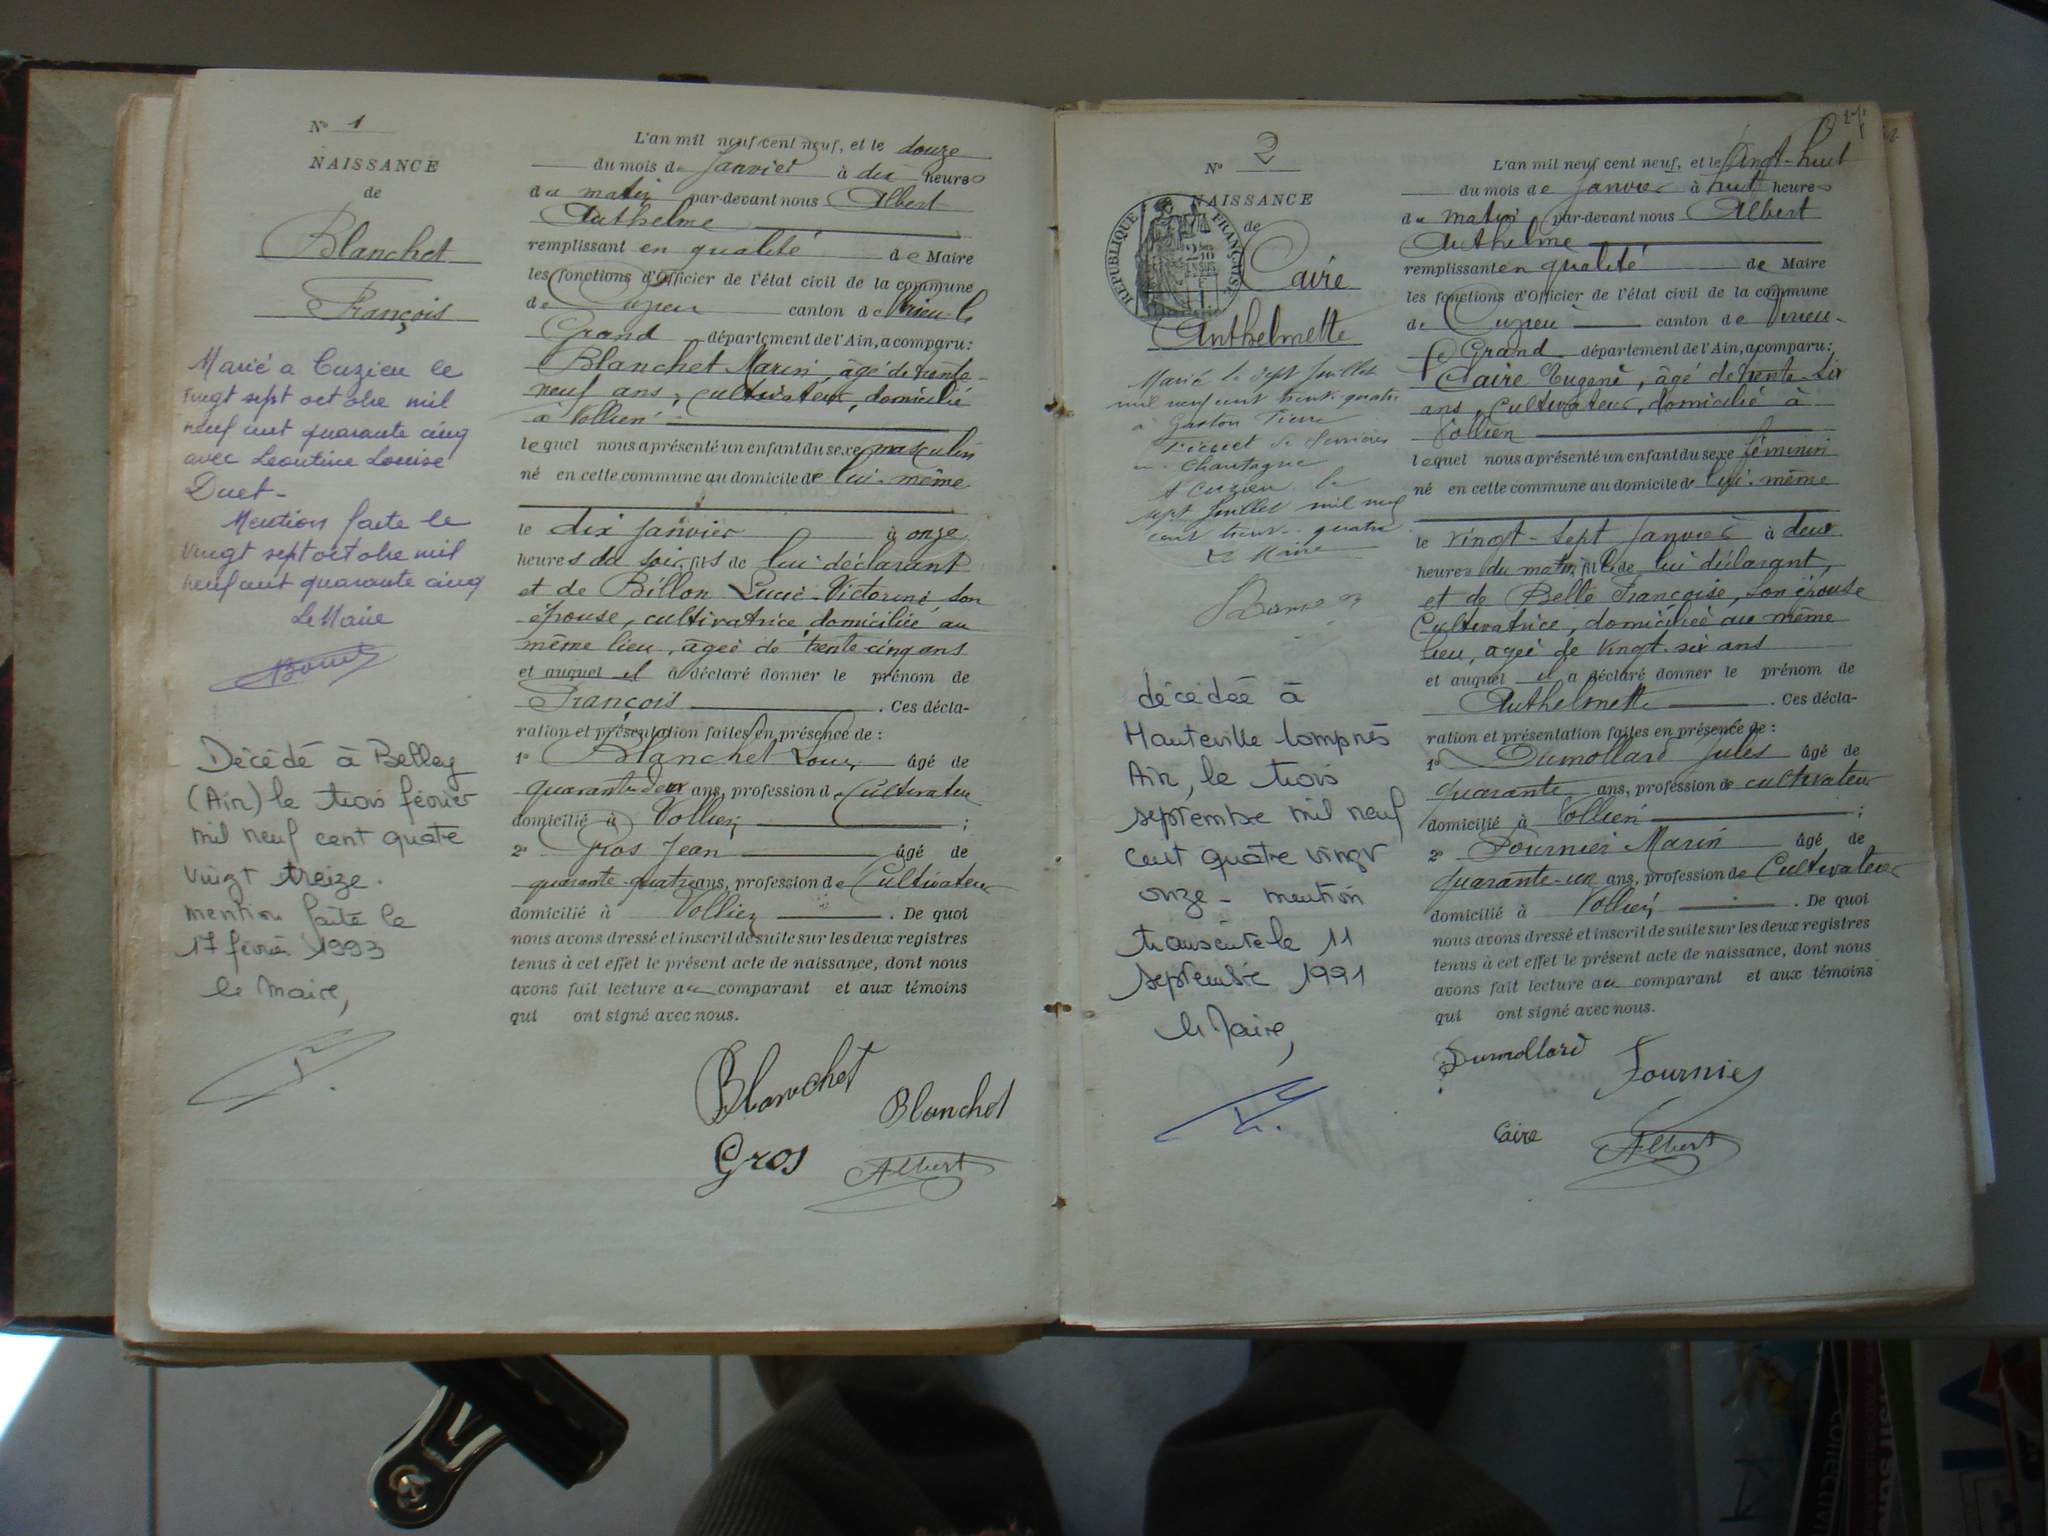 N° 1
NAISSANCE
de
Blanchet
François
Marié a Cuzieu le
vingt sept octobre mil
neuf cent quarante cinq
avec Leontine Louise
Duet-
Mention faite le
vingt sept octobre mil
neuf cent quarante cinq
Le Maire
Décédé à Belley
(Ain) le trois février
mil neuf cent quatre
vingt treize.
mention faite le
17 février 1993
le Maire,
L'an mil neuf cent neuf, et le douze
du mois de Janvier à dix heures
du matin par-devant nous Albert
Anthelme
remplissant en qualité de Maire
les fonctions d'Officier de l'état civil de la commune
de Cuzieu canton de Virieu-le
Grand département de l'Ain, a comparu:
Blanchet Marin, âgé de trente-
neuf ans, cultivateur, domicilié
à Vollien
lequel nous a présenté un enfant du sexe masculin
né en cette commune au domicile de lui-même
le dix Janvier à onze
heures du soir, fils de lui déclarant
et de Billon Lucie-Victorine, son
épouse, cultivatrice, domiciliée au
même lieu, agée de trente-cinq ans
et auquel il a déclaré donner le prénom de
François. Ces décla-
ration et présentation faites en présence de:
1° Blanchet Louis âgé de
quarante-deux ans, profession de Cultivateur
domicilié à Vollien;
2° Gros Jean âgé de
quarante-quatre ans, profession de Cultivateur
domicilié à Vollien. De quoi
nous avons dressé et inscrit de suite sur les deux registres
tenus à cet effet le présent acte de naissance, dont nous
avons fait lecture au comparant et aux témoins
qui ont signé avec nous.
Blanchet
Blanchet
Gros
Albert
N° 2
NAISSANCE
de
RÉPUBLIQUE FRANÇAISE
Caire
Anthelmette
Marié le sept Juillet
mil neuf cent trente-quatre
à Gaston Pierre
de Serrières
en Chautagne
A Cuzieu le
sept Juillet mil neuf
cent trente-quatre
Le Maire
décédée à
Hauteville Lompnès
Ain, le trois
septembre mil neuf
cent quatre vingt
onze - mention
transcrite le 11
septembre 1991
le Maire,
L'an mil neuf cent neuf, et le vingt-huit
du mois de Janvier à huit heures
du matin par-devant nous Albert
Anthelme
remplissant en qualité de Maire
les fonctions d'Officier de l'état civil de la commune
de Cuzieu canton de Virieu-
le Grand département de l'Ain, a comparu:
Claire Eugene, âgé de trente-six
ans, cultivateur, domicilié à
Vollien
lequel nous a présenté un enfant du sexe féminin
né en cette commune au domicile de lui-même
le vingt-sept Janvier à deux
heures du matin, fille de lui déclarant,
et de Belle Françoise, son épouse
Cultivatrice, domiciliée au même
lieu, agée de vingt-six ans
et auquel il a déclaré donner le prénom de
Anthelmette. Ces décla-
ration et présentation faites en présence de:
1° Dumollard Jules âgé de
quarante ans, profession de cultivateur
domicilié à Vollien;
2° Fournier Marin âgé de
quarante-un ans, profession de Cultivateur
domicilié à Vollien. De quoi
nous avons dressé et inscrit de suite sur les deux registres
tenus à cet effet le présent acte de naissance, dont nous
avons fait lecture au comparant et aux témoins
qui ont signé avec nous.
Dumollard
Fournier
Caire
Albert